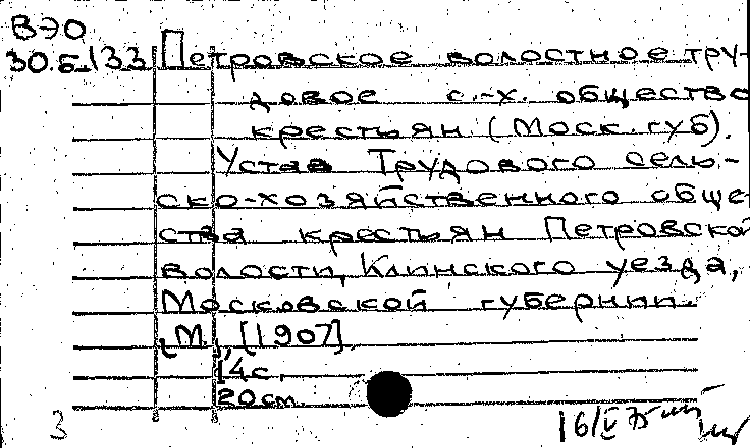 ВЭО
30.5/33 Петровское волостное тру-
довое с.-х. общество
крестьян (Моск. губ).
Устав Трудового сель-
ско-хозяйственного обще
ства крестьян Петровской
волости, Клинского уезда,
Московской губернии.
[М.], [1907].
14 с.
20 см.
3